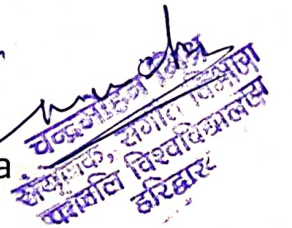 चन्द्रमोहन मिश्र
संयोजक, संगीत विभाग
पतंजलि विश्वविद्यालय
हरिद्वार
a